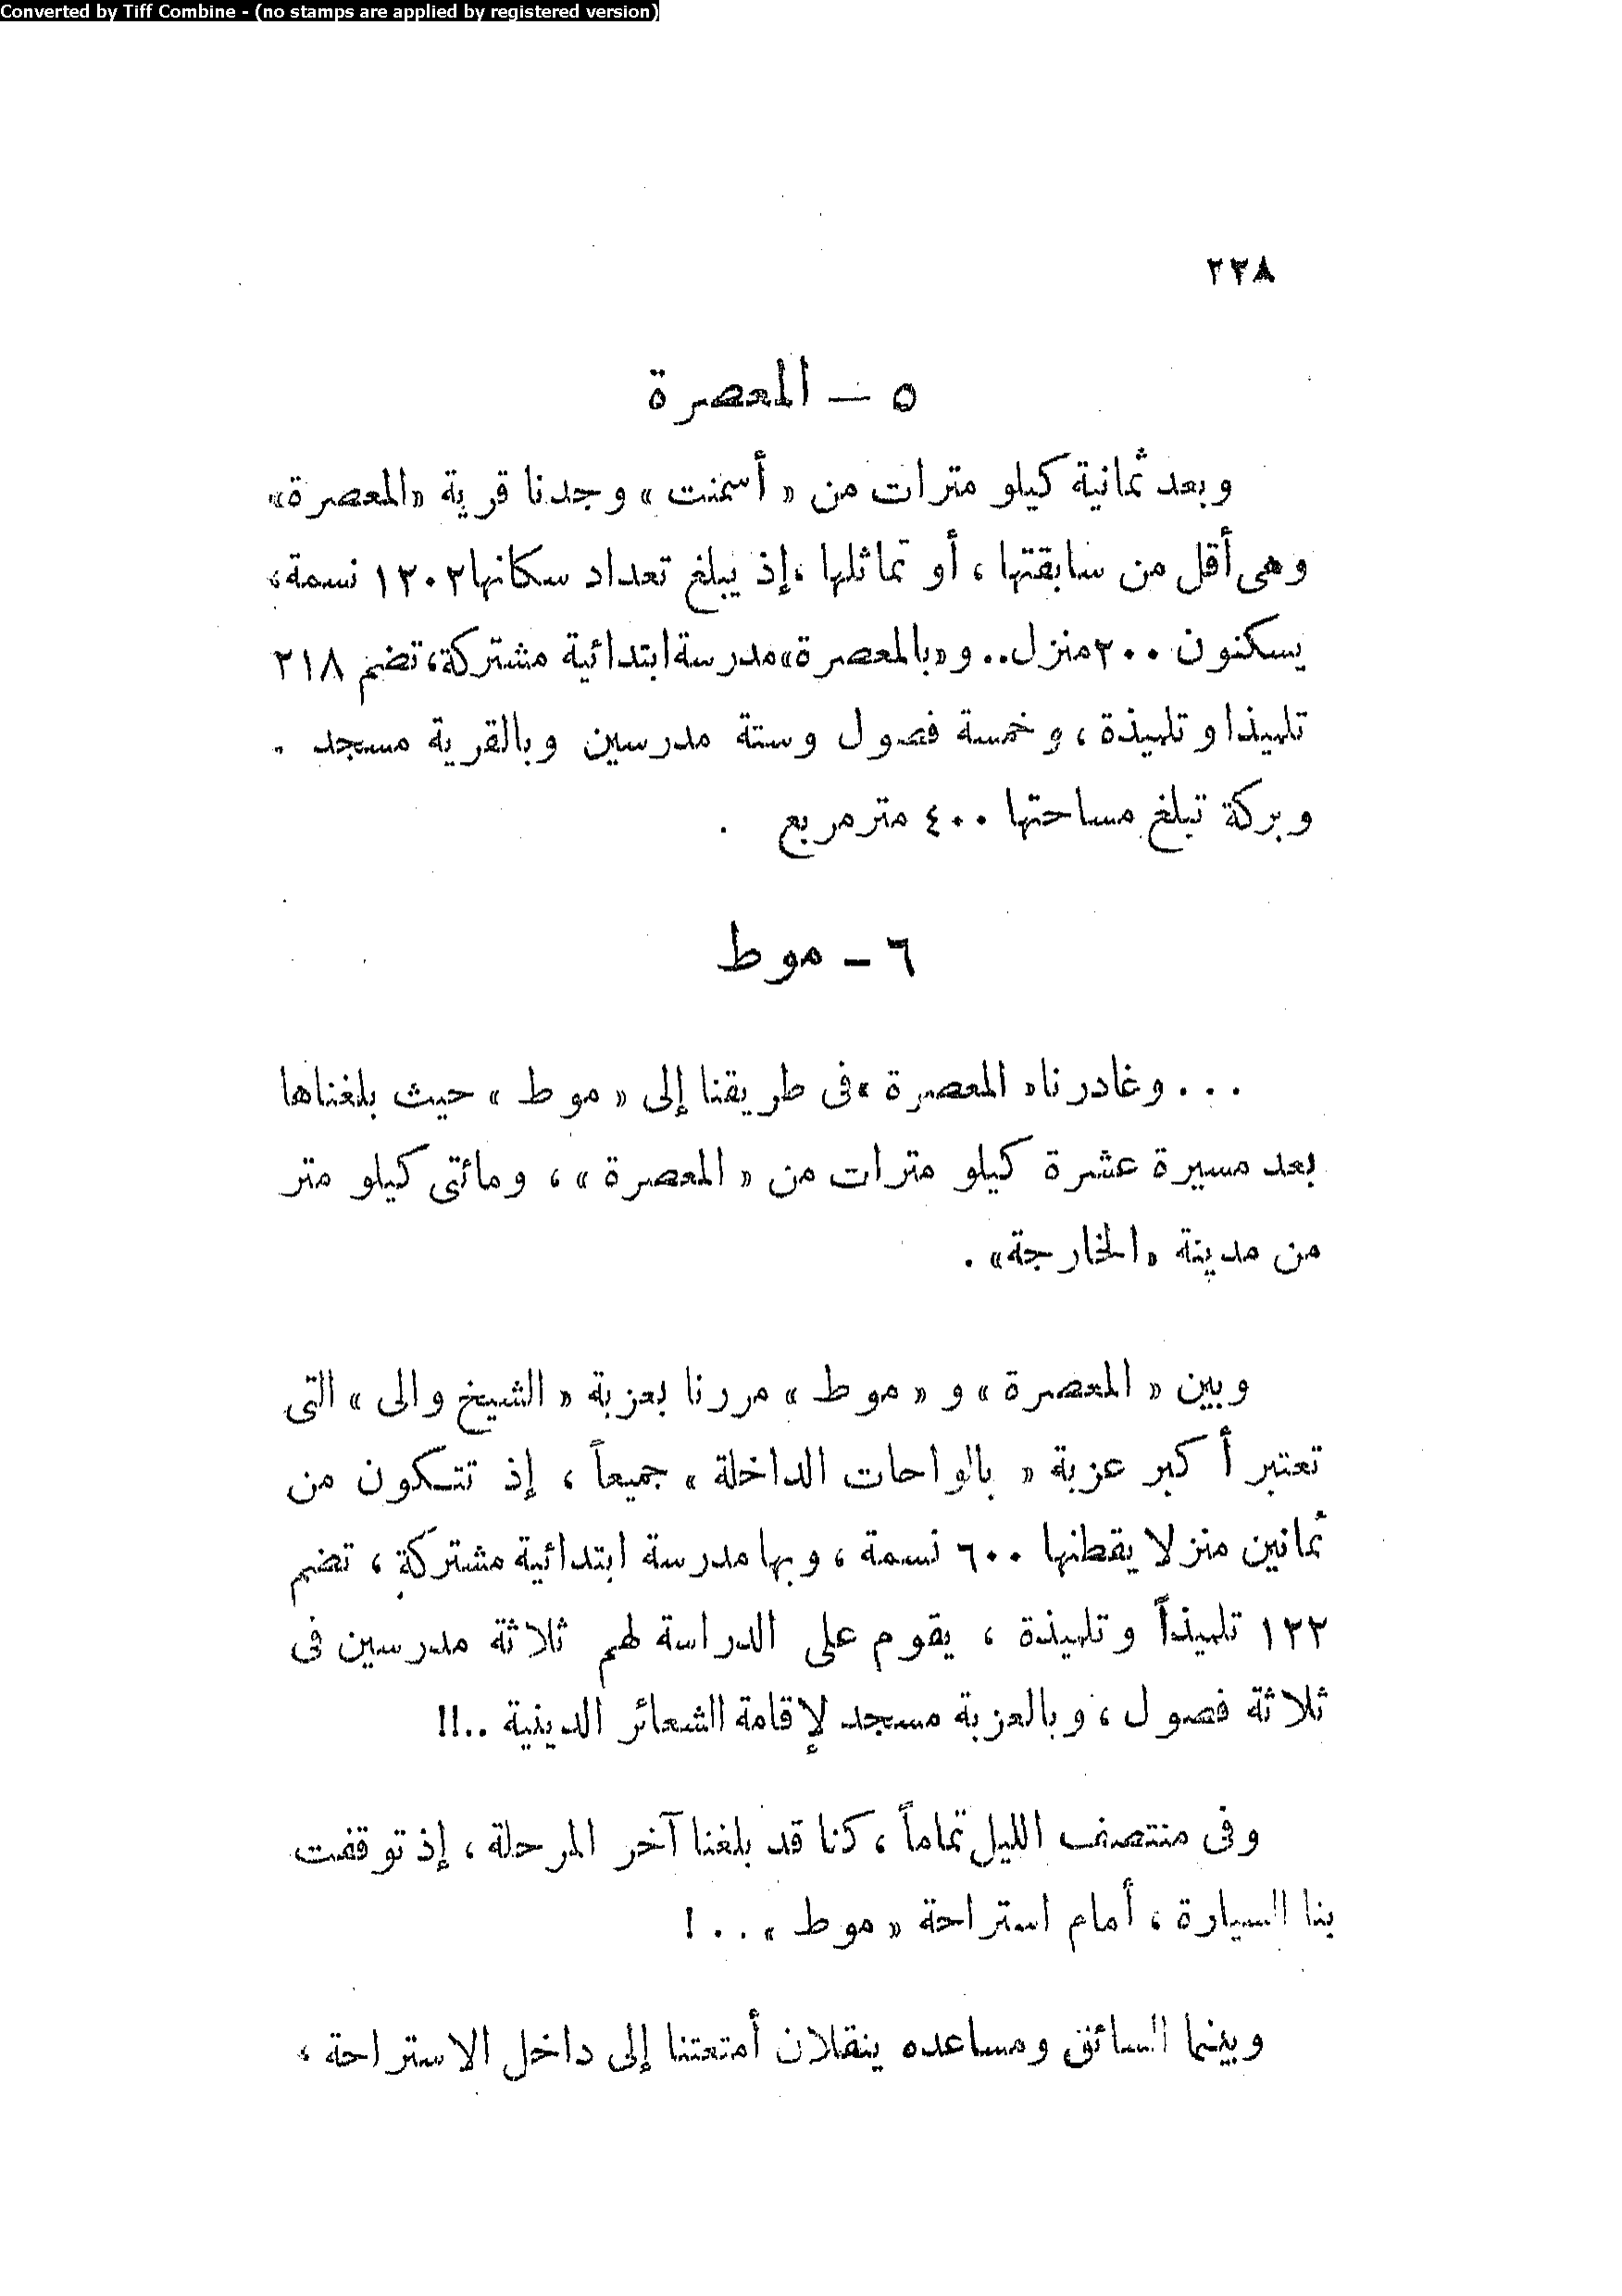 Converted by Tiff Combine - (no stamps are applied by registered version)
٢٢٨
٥ — المعصرة
وبعد ثمانية كيلو مترات من « أسمنت » وجدنا قرية «المعصرة»
وهى أقل من سابقتها ، أو تماثلها ، إذ يبلغ تعداد سكانها ١٣٠٢ نسمة ،
يسكنون ٢٠٠ منزل.. و«بالمعصرة» مدرسة ابتدائية مشتركة ، تضم ٢١٨
تلميذا وتلميذة ، وخمسة فصول وستة مدرسين وبالقرية مسجد .
وبركة تبلغ مساحتها ٤٠٠ متر مربع .
٦ - موط
... وغادرنا « المعصرة » فى طريقنا إلى « موط » حيث بلغناها
بعد مسيرة عشرة كيلو مترات من « المعصرة » ، ومائتى كيلو متر
من مدينة «الخارجة» .
وبين « المعصرة » و « موط » مررنا بعزبة « الشيخ والى » التى
تعتبر أكبر عزبة « بالواحات الداخلة » جميعاً ، إذ تتكون من
ثمانين منزلا يقطنها ٦٠٠ نسمة ، وبها مدرسة ابتدائية مشتركة ، تضم
١٢٢ تلميذاً وتلميذة ، يقوم على الدراسة لهم ثلاثة مدرسين فى
ثلاثة فصول ، وبالعزبة مسجد لإقامة الشعائر الدينية ..!!
وفى منتصف الليل تماماً ، كنا قد بلغنا آخر المرحلة ، إذ توقفت
بنا السيارة ، أمام استراحة « موط » ...!
وبينما السائق ومساعده ينقلان أمتعتنا إلى داخل الاستراحة ،